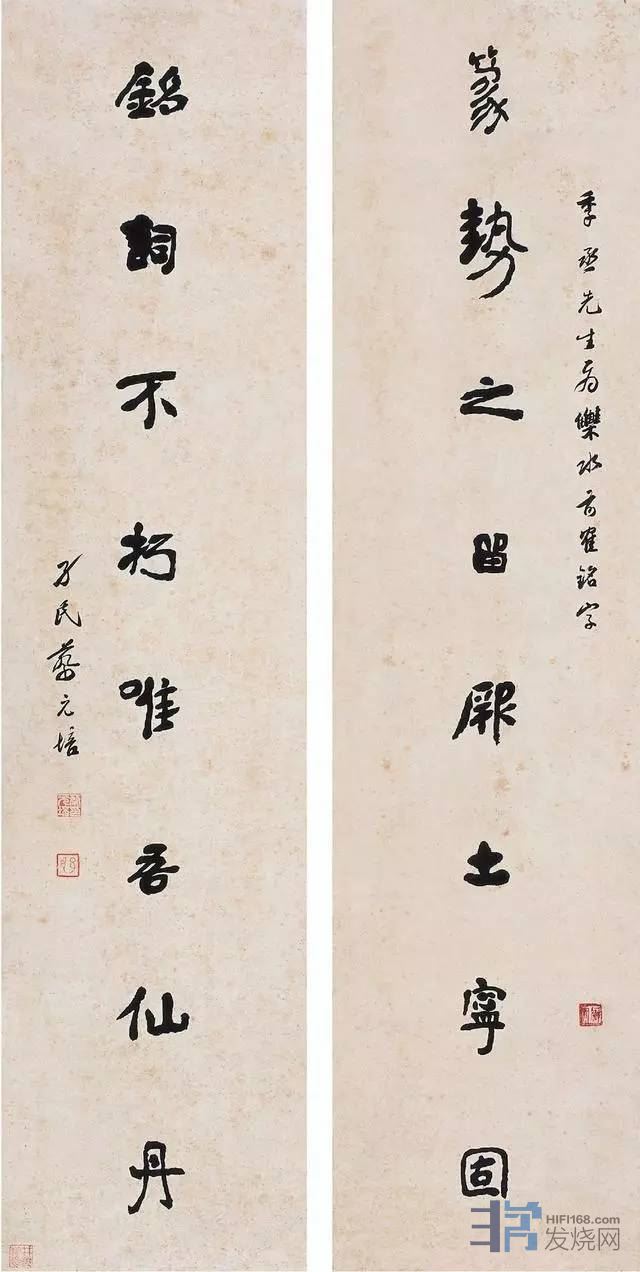 季丞先生為雧水前寉銘字
篆勢之留厥土寧固
銘詞不朽唯吾仙丹
孑民蔡元培
HIFI168.com
发烧网